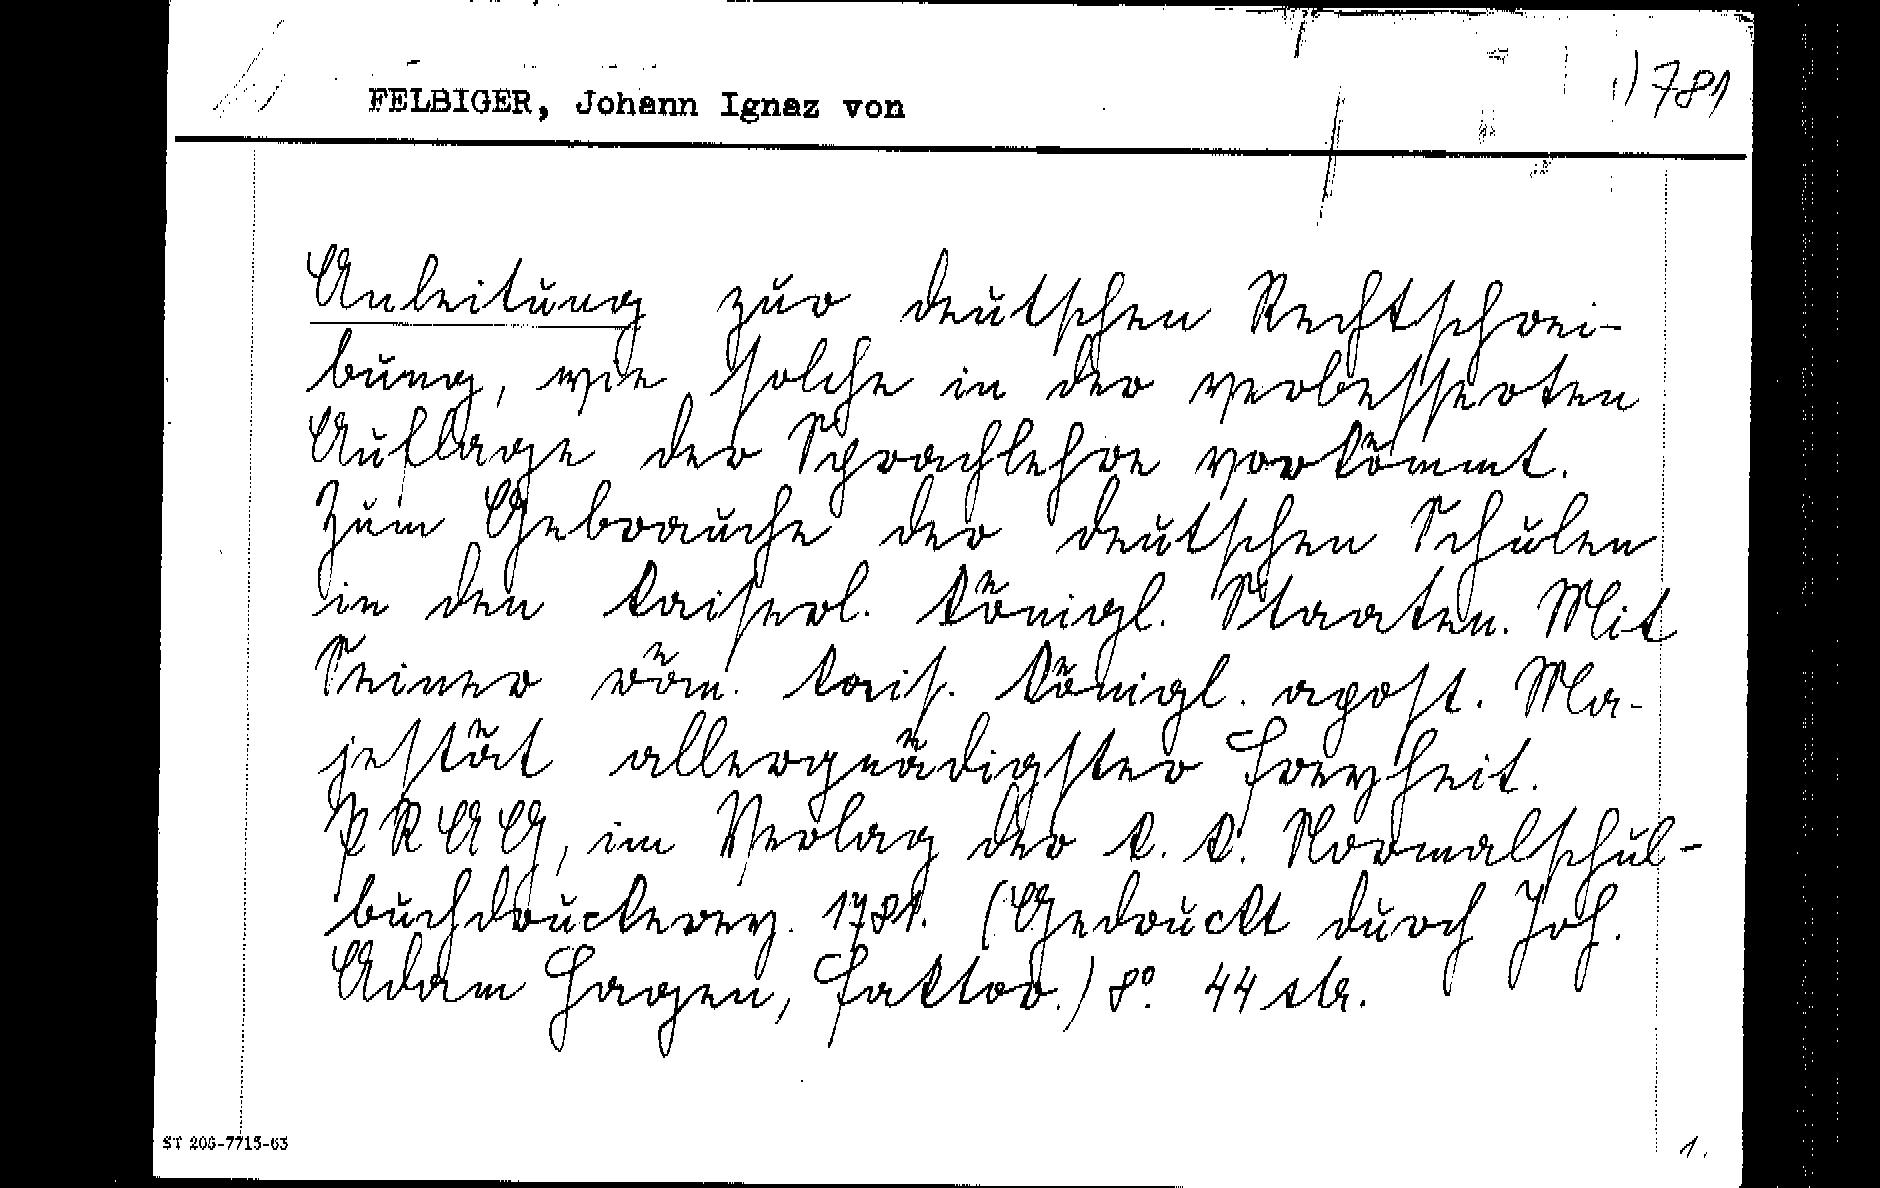 FELBIGER, Johann Ignaz von
1781
Anleitung zur deutschen Rechtschrei-
bung, wie solche in der verbesserten
Auflage der Sprachlehre vorkömmt.
Zum Gebrauche der deutschen Schulen
in den kaiserl. königl. Staaten. Mit
Seiner röm. kais. königl. apost. Ma-
jestät allergnädigster Freyheit.
PRAG, im Verlag der k. k. Normalschul-
buchdruckerey. 1781. (Gedruckt durch Joh.
Adam Hagen, Faktor.) 8° 44 str.
ST 206-7715-63
1.